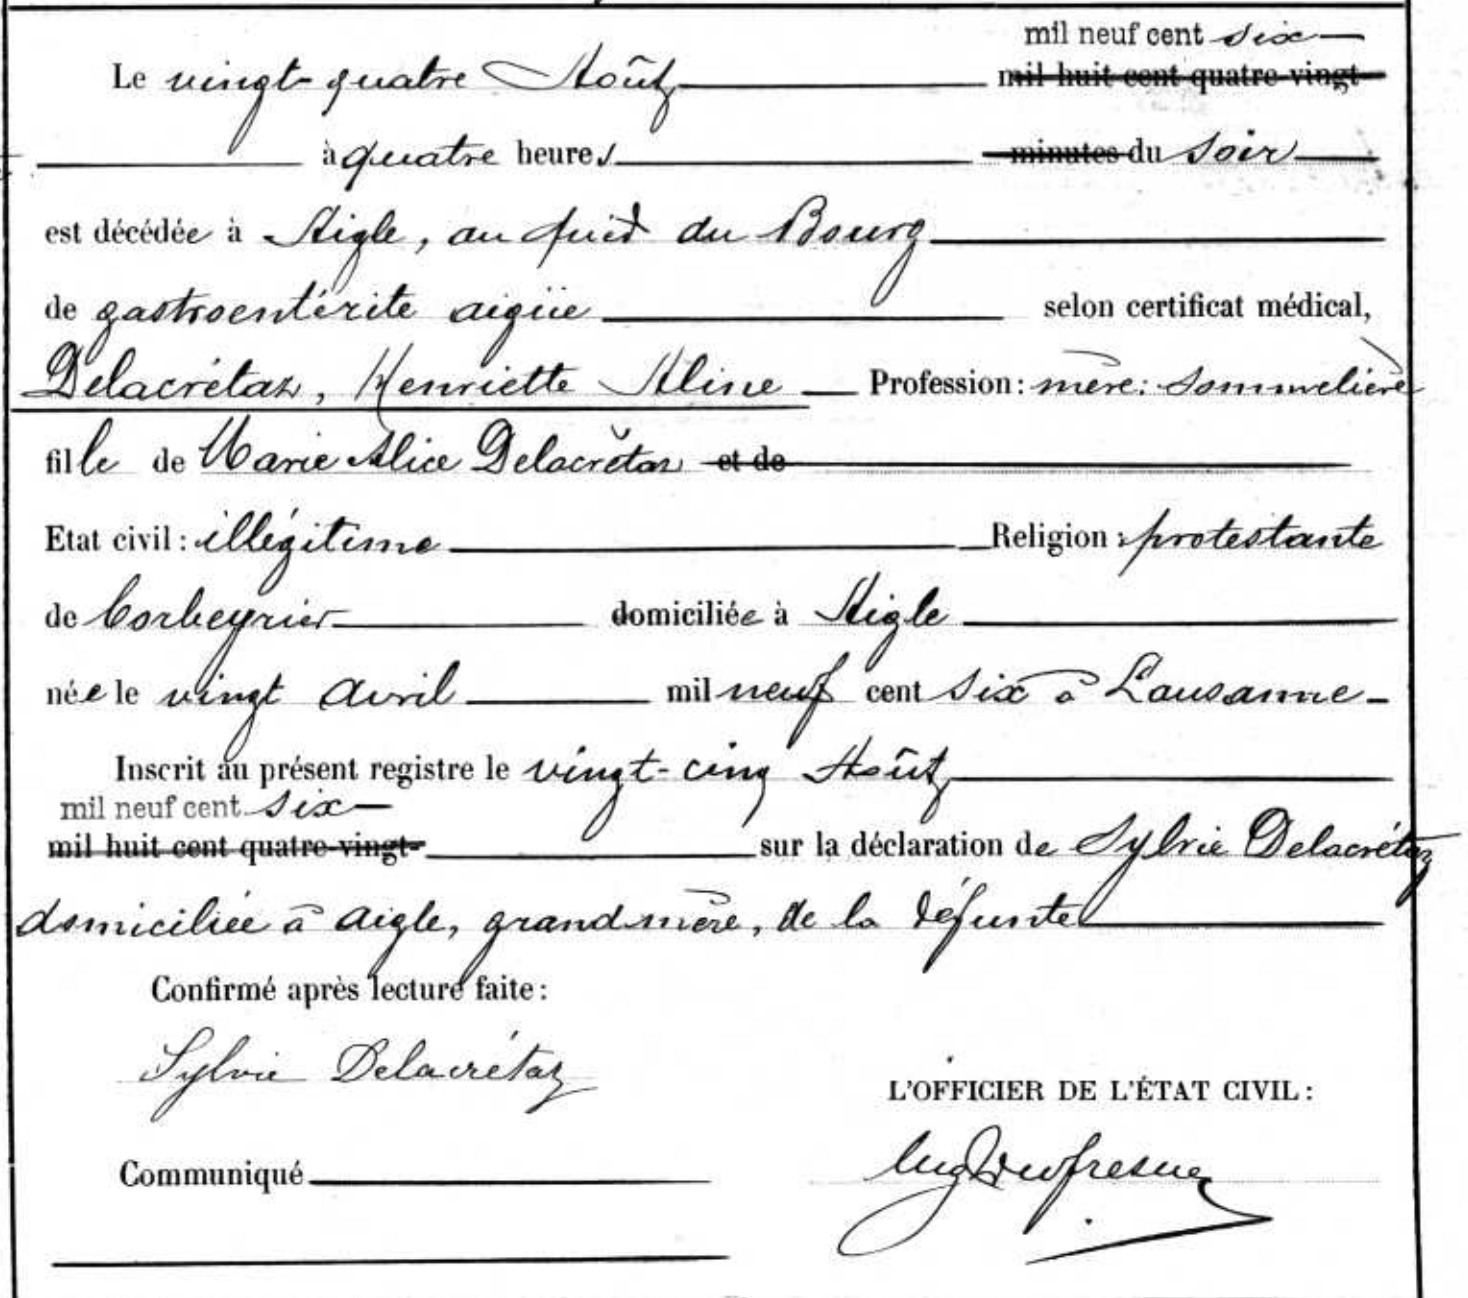 mil neuf cent six
Le vingt-quatre Août mil huit cent quatre-vingt
à quatre heures minutes du soir
est décédée à Aigle, au quid du Bourg
de gastroentérite aigüe selon certificat médical,
Delacrétaz, Henriette Aline Profession: mère: sommelière
fille de Marie Alice Delacrétaz et de
Etat civil: illégitime Religion: protestante
de Corbeyrier domiciliée à Aigle
née le vingt avril mil neuf cent six à Lausanne
Inscrit au présent registre le vingt-cinq Août
mil neuf cent six
mil huit cent quatre-vingt- sur la déclaration de Sylvie Delacrétaz
domiciliée à Aigle, grand mère, de la défunte
Confirmé après lecture faite:
Sylvie Delacrétaz
L'OFFICIER DE L'ÉTAT CIVIL:
Dufresne
Communiqué